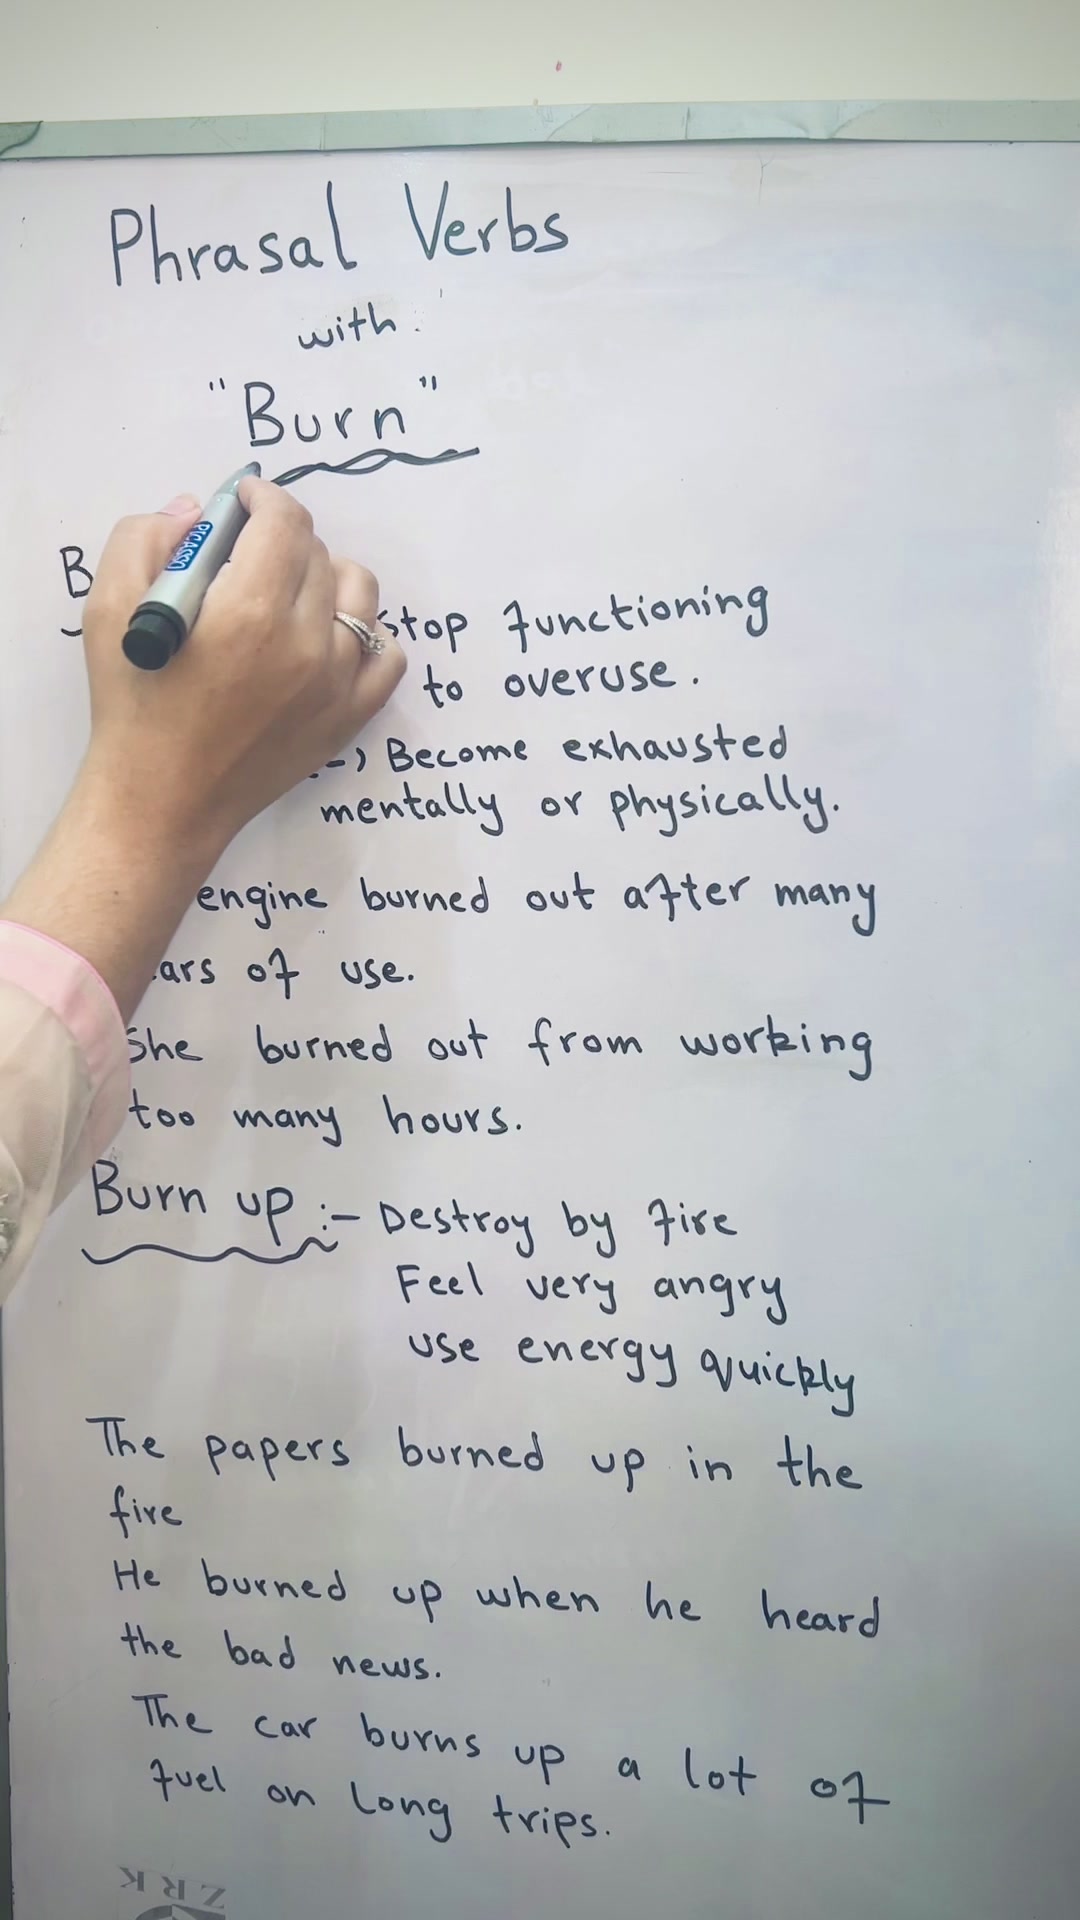 Phrasal Verbs
with
"Burn"
PICASSO
B
Stop functioning
to overuse.
:-) Become exhausted
mentally or physically.
engine burned out after many
ars of use.
She burned out from working
too many hours.
Burn up :- Destroy by fire
Feel very angry
use energy quickly
The papers burned up in the
fire
He burned up when he heard
the bad news.
The car burns up a lot of
fuel on long trips.
ZRK